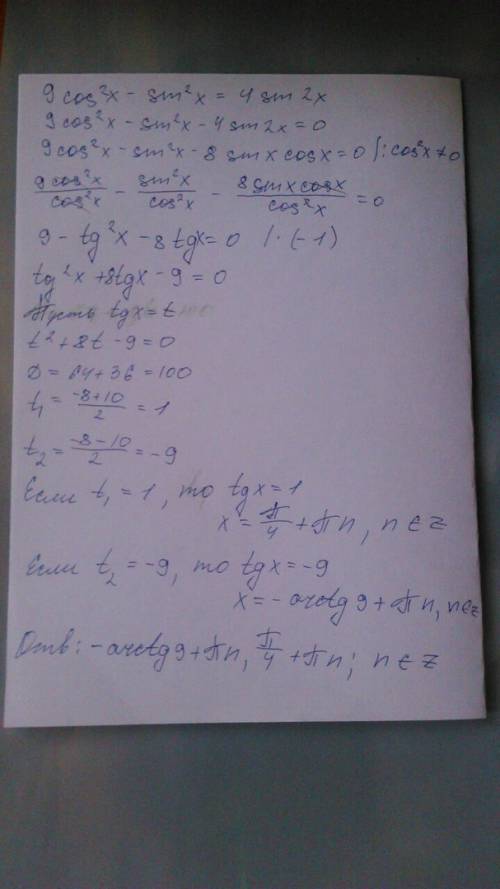 9cos²x - sin²x = 4sin2x
9cos²x - sin²x - 4sin2x = 0
9cos²x - sin²x - 8sinxcosx = 0 /: cos²x ≠ 0
9cos²x/cos²x - sin²x/cos²x - 8sinxcosx/cos²x = 0
9 - tg²x - 8tgx = 0 /·(-1)
tg²x + 8tgx - 9 = 0
Пусть tgx = t
t² + 8t - 9 = 0
D = 64 + 36 = 100
t₁ = (-8+10)/2 = 1
t₂ = (-8-10)/2 = -9
Если t₁ = 1, то tgx = 1
x = π/4 + πn, n ∈ z
Если t₂ = -9, то tgx = -9
x = - arctg9 + πn, n∈z
Отв: - arctg9 + πn, π/4 + πn; n ∈ z